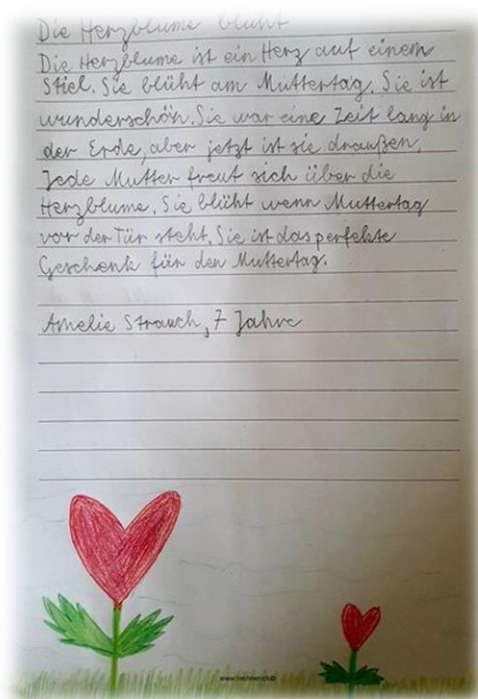 Die Herzblume blüht
Die Herzblume ist ein Herz auf einem
Stiel. Sie blüht am Muttertag. Sie ist
wunderschön. Sie war eine Zeit lang in
der Erde, aber jetzt ist sie draußen.
Jede Mutter freut sich über die
Herzblume. Sie blüht wenn Muttertag
vor der Tür steht. Sie ist das perfekte
Geschenk für den Muttertag.
Amelie Strauch, 7 Jahre